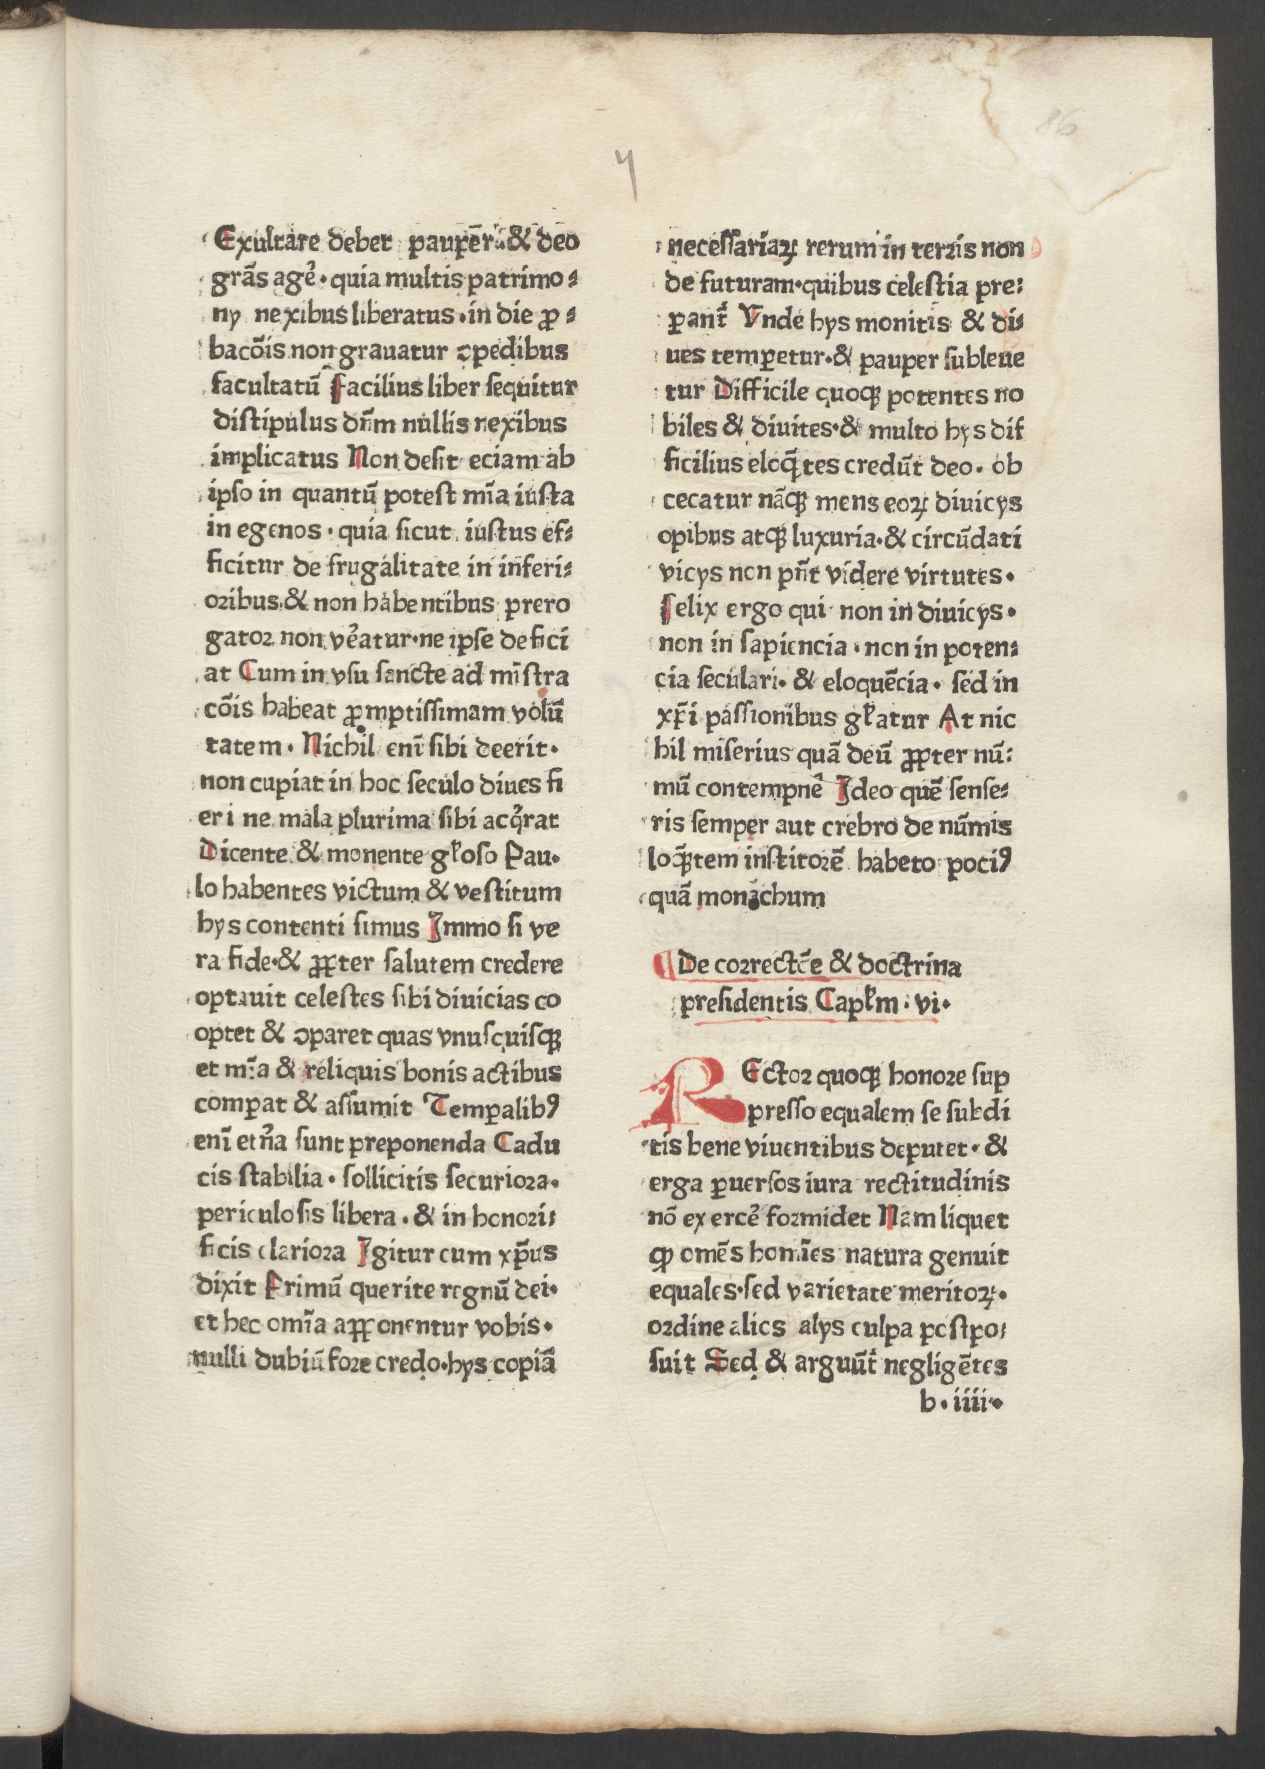 86
7
Exultare debet paupeꝛ & deo
grās agē · quia multis patrimo⸗
ny nexibus liberatus · in die ꝓ⸗
bacōis non grauatur ꝯpedibus
facultatū Facilius liber sequitur
distipulus dn̄m nullis nexibus
implicatus Non desit eciam ab
ipso in quantū potest mīa iusta
in egenos · quia sicut iustus ef⸗
ficitur de frugalitate in inferi⸗
oribus & non habentibus prero
gator non vēatur · ne ipse defici
at Cum in vsu sancte ad mīstra
cōis habeat ꝓmptissimam volū
tatem · Nichil enī sibi deerit ·
non cupiat in hoc seculo diues fi
eri ne mala plurima sibi acq̄rat
Dicente & monente gl̄oso Pau·
lo habentes victum & vestitum
hys contenti simus Immo si ve
ra fide · & ꝓpter salutem credere
optauit celestes sibi diuicias co
optet & ꝯparet quas vnusquisqꝫ
et mīa & reliquis bonis actibus
comꝑat & assumit Temꝑalibꝰ
enī et̄na sunt preponenda Cadu
cis stabilia · sollicitis securiora ·
periculosis libera · & in honori⸗
ficis clariora Igitur cum xp̄us
dixit Primū querite regnū dei ·
et hec omīa apponentur vobis ·
nulli dubiū fore credo · hys copiā
necessariaꝝ rerum in terris non
de futuram · quibus celestia pre⸗
ꝑant᷑ Vnde hys monitis & di⸗
ues temꝑetur · & pauper subleue
tur Difficile quoqꝫ potentes no
biles & diuites · & multo hys dif
ficilius eloq̄ntes credūt deo · ob
cecatur nāqꝫ mens eoꝝ diuicys
opibus atqꝫ luxuria · & circūdati
vicys non pn̄t videre virtutes ·
Felix ergo qui non in diuicys ·
non in sapiencia · non in poten⸗
cia seculari · & eloquēcia · sed in
xp̄i passionibus gl̄atur At nic
hil miserius quā deū ꝓpter nū⸗
mū contempnē Ideo quē sense⸗
ris semper aut crebro de nūmis
loq̄ntem institorē habeto pociꝰ
quā monachum
De correctōe & doctrina
presidentis Capl̄m · vi ·
REctor quoqꝫ honore sup
presso equalem se subdi
tis bene viuentibus deputet · &
erga ꝑuersos iura rectitudinis
nō exercē formidet Nam liquet
ꝙ omēs homīes natura genuit
equales · sed varietate meritoꝝ ·
ordine alios alys culpa postpo⸗
suit Sed & arguūt᷑ negligētes
b · iiii ·